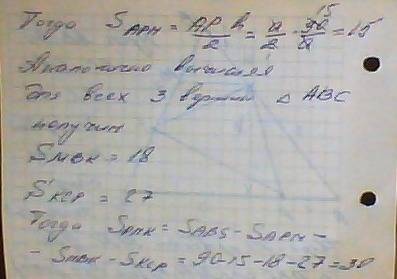 Тогда S_APM = AP·h/2 = a/2 · 30/a = 15
15
Аналогично вычисляя
для всех 3 вершин △ ABC
получим
S_MBK = 18
S_KCP = 27
Тогда S_PMK = S_ABC - S_APM -
- S_MBK - S_KCP = 90-15-18-27=30